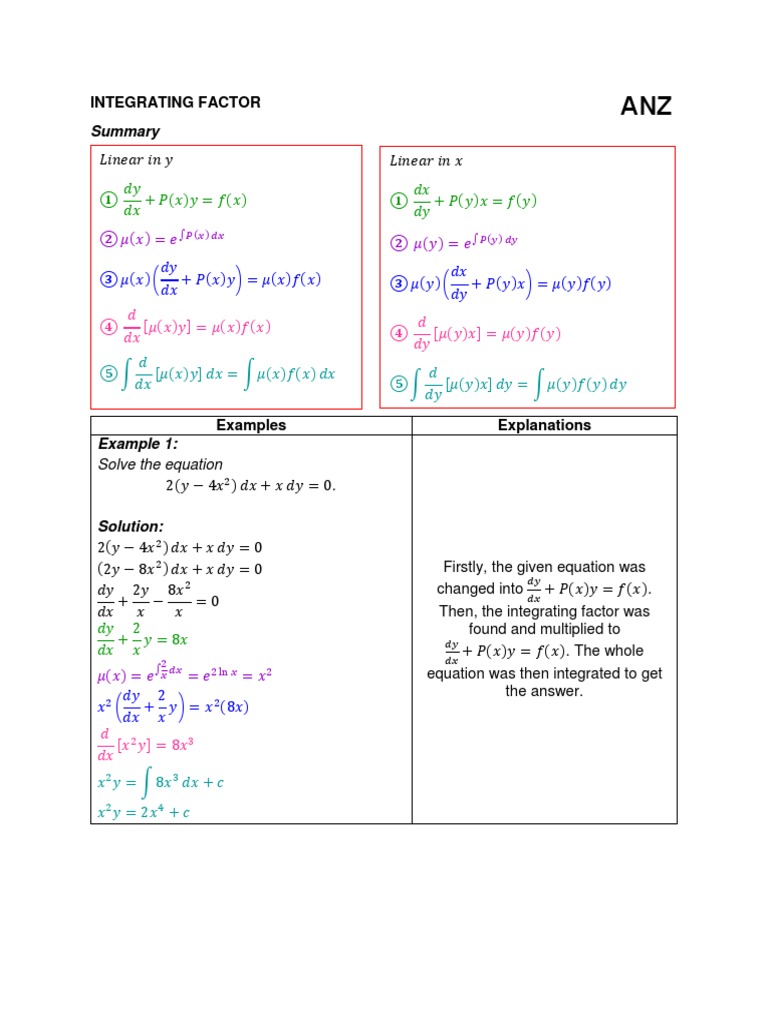 INTEGRATING FACTOR
ANZ
Summary
Linear in y
① dy/dx + P(x)y = f(x)
② μ(x) = e^∫P(x) dx
③ μ(x)(dy/dx + P(x)y) = μ(x)f(x)
④ d/dx [μ(x)y] = μ(x)f(x)
⑤ ∫ d/dx [μ(x)y] dx = ∫ μ(x)f(x) dx
Linear in x
① dx/dy + P(y)x = f(y)
② μ(y) = e^∫P(y) dy
③ μ(y)(dx/dy + P(y)x) = μ(y)f(y)
④ d/dy [μ(y)x] = μ(y)f(y)
⑤ ∫ d/dy [μ(y)x] dy = ∫ μ(y)f(y) dy
Examples
Example 1:
Solve the equation
2(y − 4x²) dx + x dy = 0.
Solution:
2(y − 4x²) dx + x dy = 0
(2y − 8x²) dx + x dy = 0
dy/dx + 2y/x − 8x²/x = 0
dy/dx + 2/x y = 8x
μ(x) = e^∫2/x dx = e^2 ln x = x²
x² (dy/dx + 2/x y) = x²(8x)
d/dx [x²y] = 8x³
x²y = ∫ 8x³ dx + c
x²y = 2x⁴ + c
Explanations
Firstly, the given equation was
changed into dy/dx + P(x)y = f(x).
Then, the integrating factor was
found and multiplied to
dy/dx + P(x)y = f(x). The whole
equation was then integrated to get
the answer.